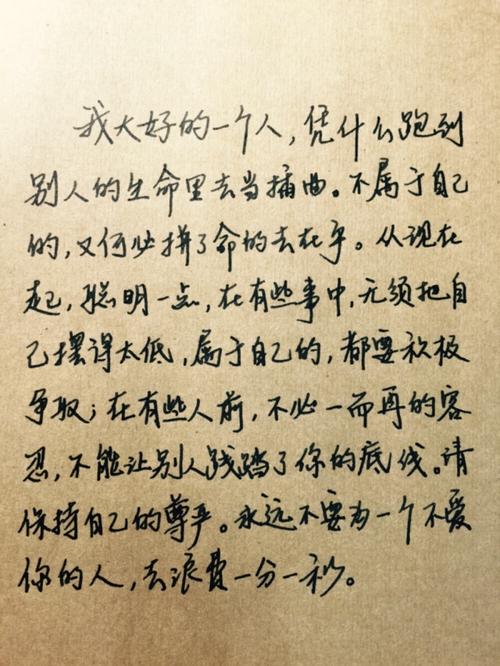 我大好的一个人，凭什么跑到
别人的生命里去当插曲。不属于自己
的，又何必拼了命的去在乎。从现在
起，聪明一点，在有些事中，无须把自
己摆得太低，属于自己的，都要积极
争取；在有些人前，不必一而再的容
忍，不能让别人践踏了你的底线。请
保持自己的尊严。永远不要为一个不爱
你的人，去浪费一分一秒。